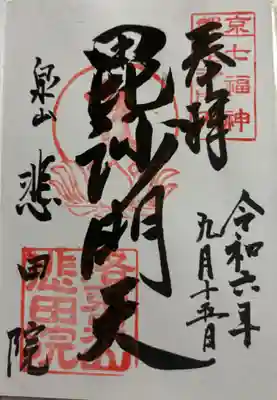 奉拝
京七福神
毘沙門天
令和六年
九月十五日
泉山
悲田院
悲田院